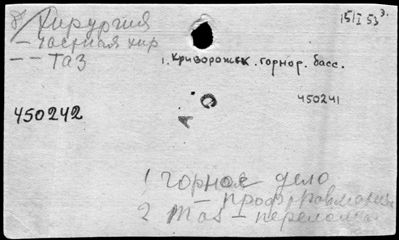 Хирургия
15/I 53 г.
— частная хир
— — Таз
1. Криворожск. горнор. басс.
450241
450242
1 Горное дело
— профтравматизм
2 Таз — переломы